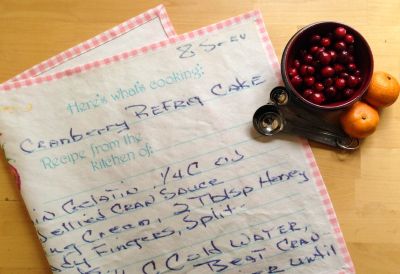 8 5
Here's what's cooking:
Cranberry Refrig Cake
Recipe from the
kitchen of:
Gelatin 1/4 C
Cran Sauce
Cream, 2 Tblsp Honey
Fingers, Split
C Cold Water,
Beat Cran
until